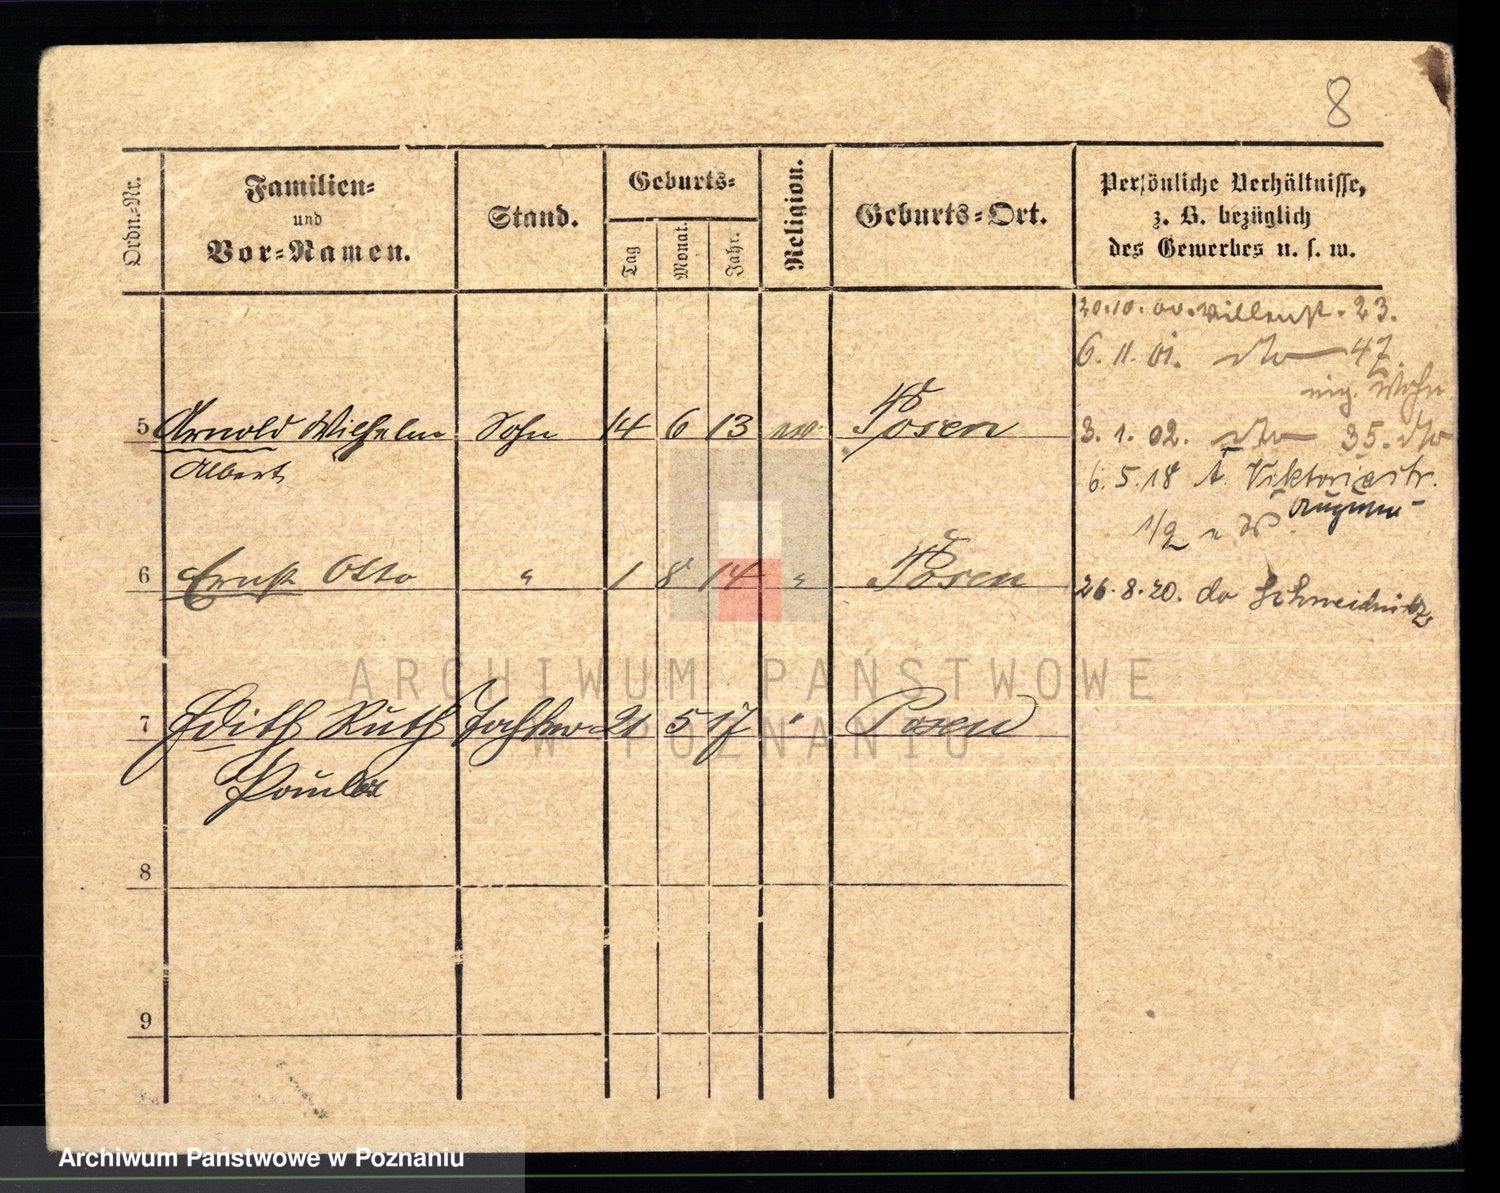 8
Ordn.-Nr.
Familien-
und
Vor-Namen.
Stand.
Geburts-
Tag
Monat.
Jahr.
Religion.
Geburts-Ort.
Persönliche Verhältnisse,
z. B. bezüglich
des Gewerbes u. s. w.
20.10. 00. 23.
6. 11. 01. dto 47.
Wohn
5 Arnold Wilhelm Sohn 14 6 13 ev Posen
Albert
3. 1. 02. dto 35. dto
6. 5. 18 A. Viktoriastr.
Augusta-
1/2
6 Ernst Otto " 1 8 14 " Posen
26. 8. 20. do Schweidnitz
7 Edith Ruth Tochter 21 5 17 " Posen
Paula
8
9
ARCHIWUM PAŃSTWOWE
W POZNANIU
Archiwum Państwowe w Poznaniu